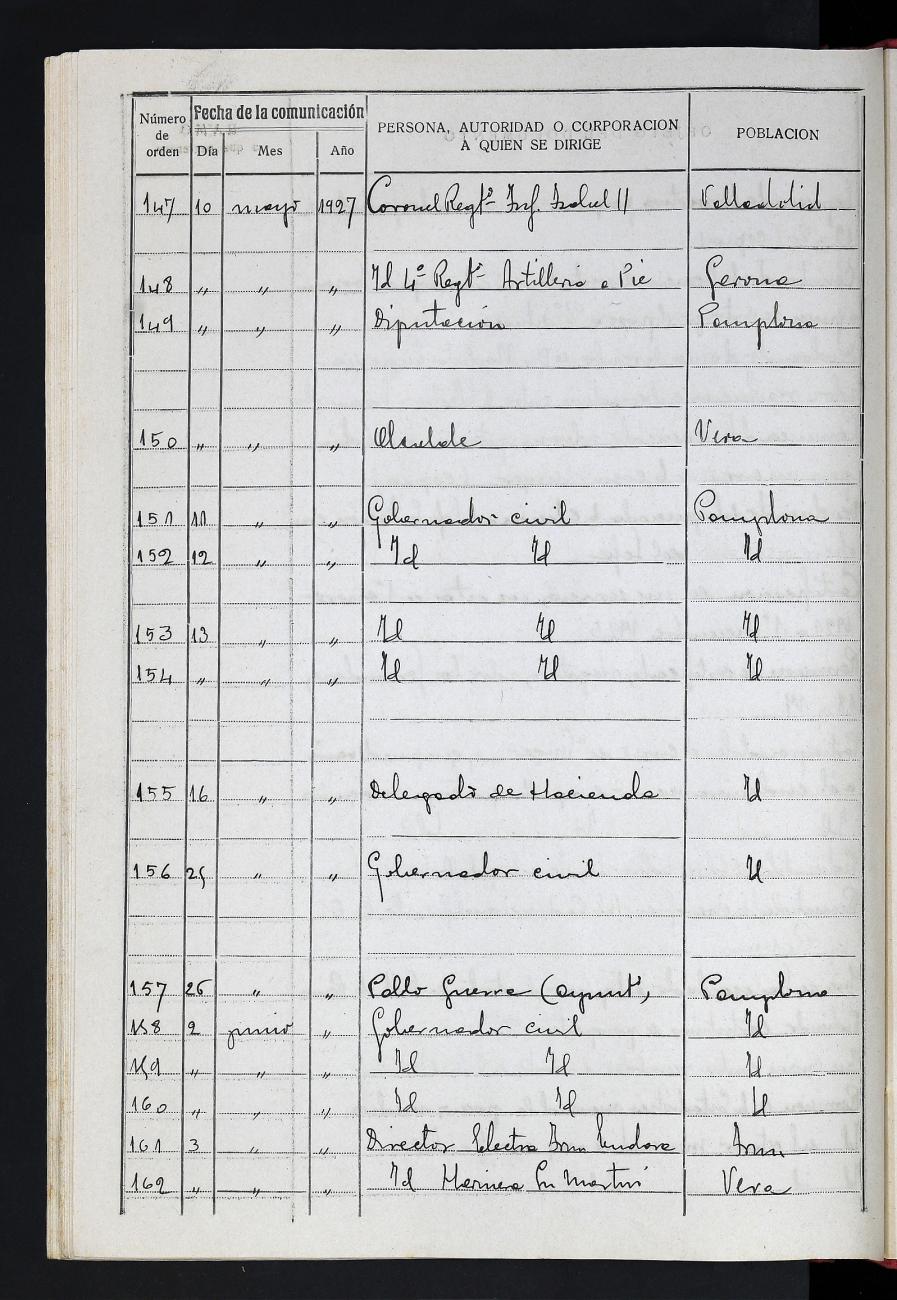 Número de orden Fecha de la comunicación PERSONA, AUTORIDAD O CORPORACION A QUIEN SE DIRIGE POBLACION
Día Mes Año
147 10 mayo 1927 Coronel Regtº Inf. Isabel II Valladolid
148 〃 〃 〃 Id 4º Regtº Artilleria a Pie Gerona
149 〃 〃 〃 Diputación Pamplona
150 〃 〃 〃 Alcalde Vera
151 11 〃 〃 Gobernador civil Pamplona
152 12 〃 〃 Id Id Id
153 13 〃 〃 Id Id Id
154 〃 〃 〃 Id Id Id
155 16 〃 〃 Delegado de Hacienda Id
156 25 〃 〃 Gobernador civil Id
157 26 〃 〃 Pablo Guerra (Ayunt', Pamplona
158 2 junio 〃 Gobernador civil Id
159 〃 〃 〃 Id Id Id
160 〃 〃 〃 Id Id Id
161 3 〃 〃 Director Electra Irun Irun
162 〃 〃 〃 Id Martin Vera